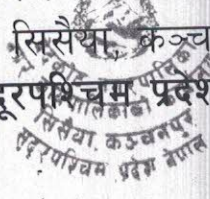 सिसैया, कञ्च
दूरपश्चिम प्रदेश
सिसैया, कञ्चनपुर
सुदूरपश्चिम प्रदेश नेपाल